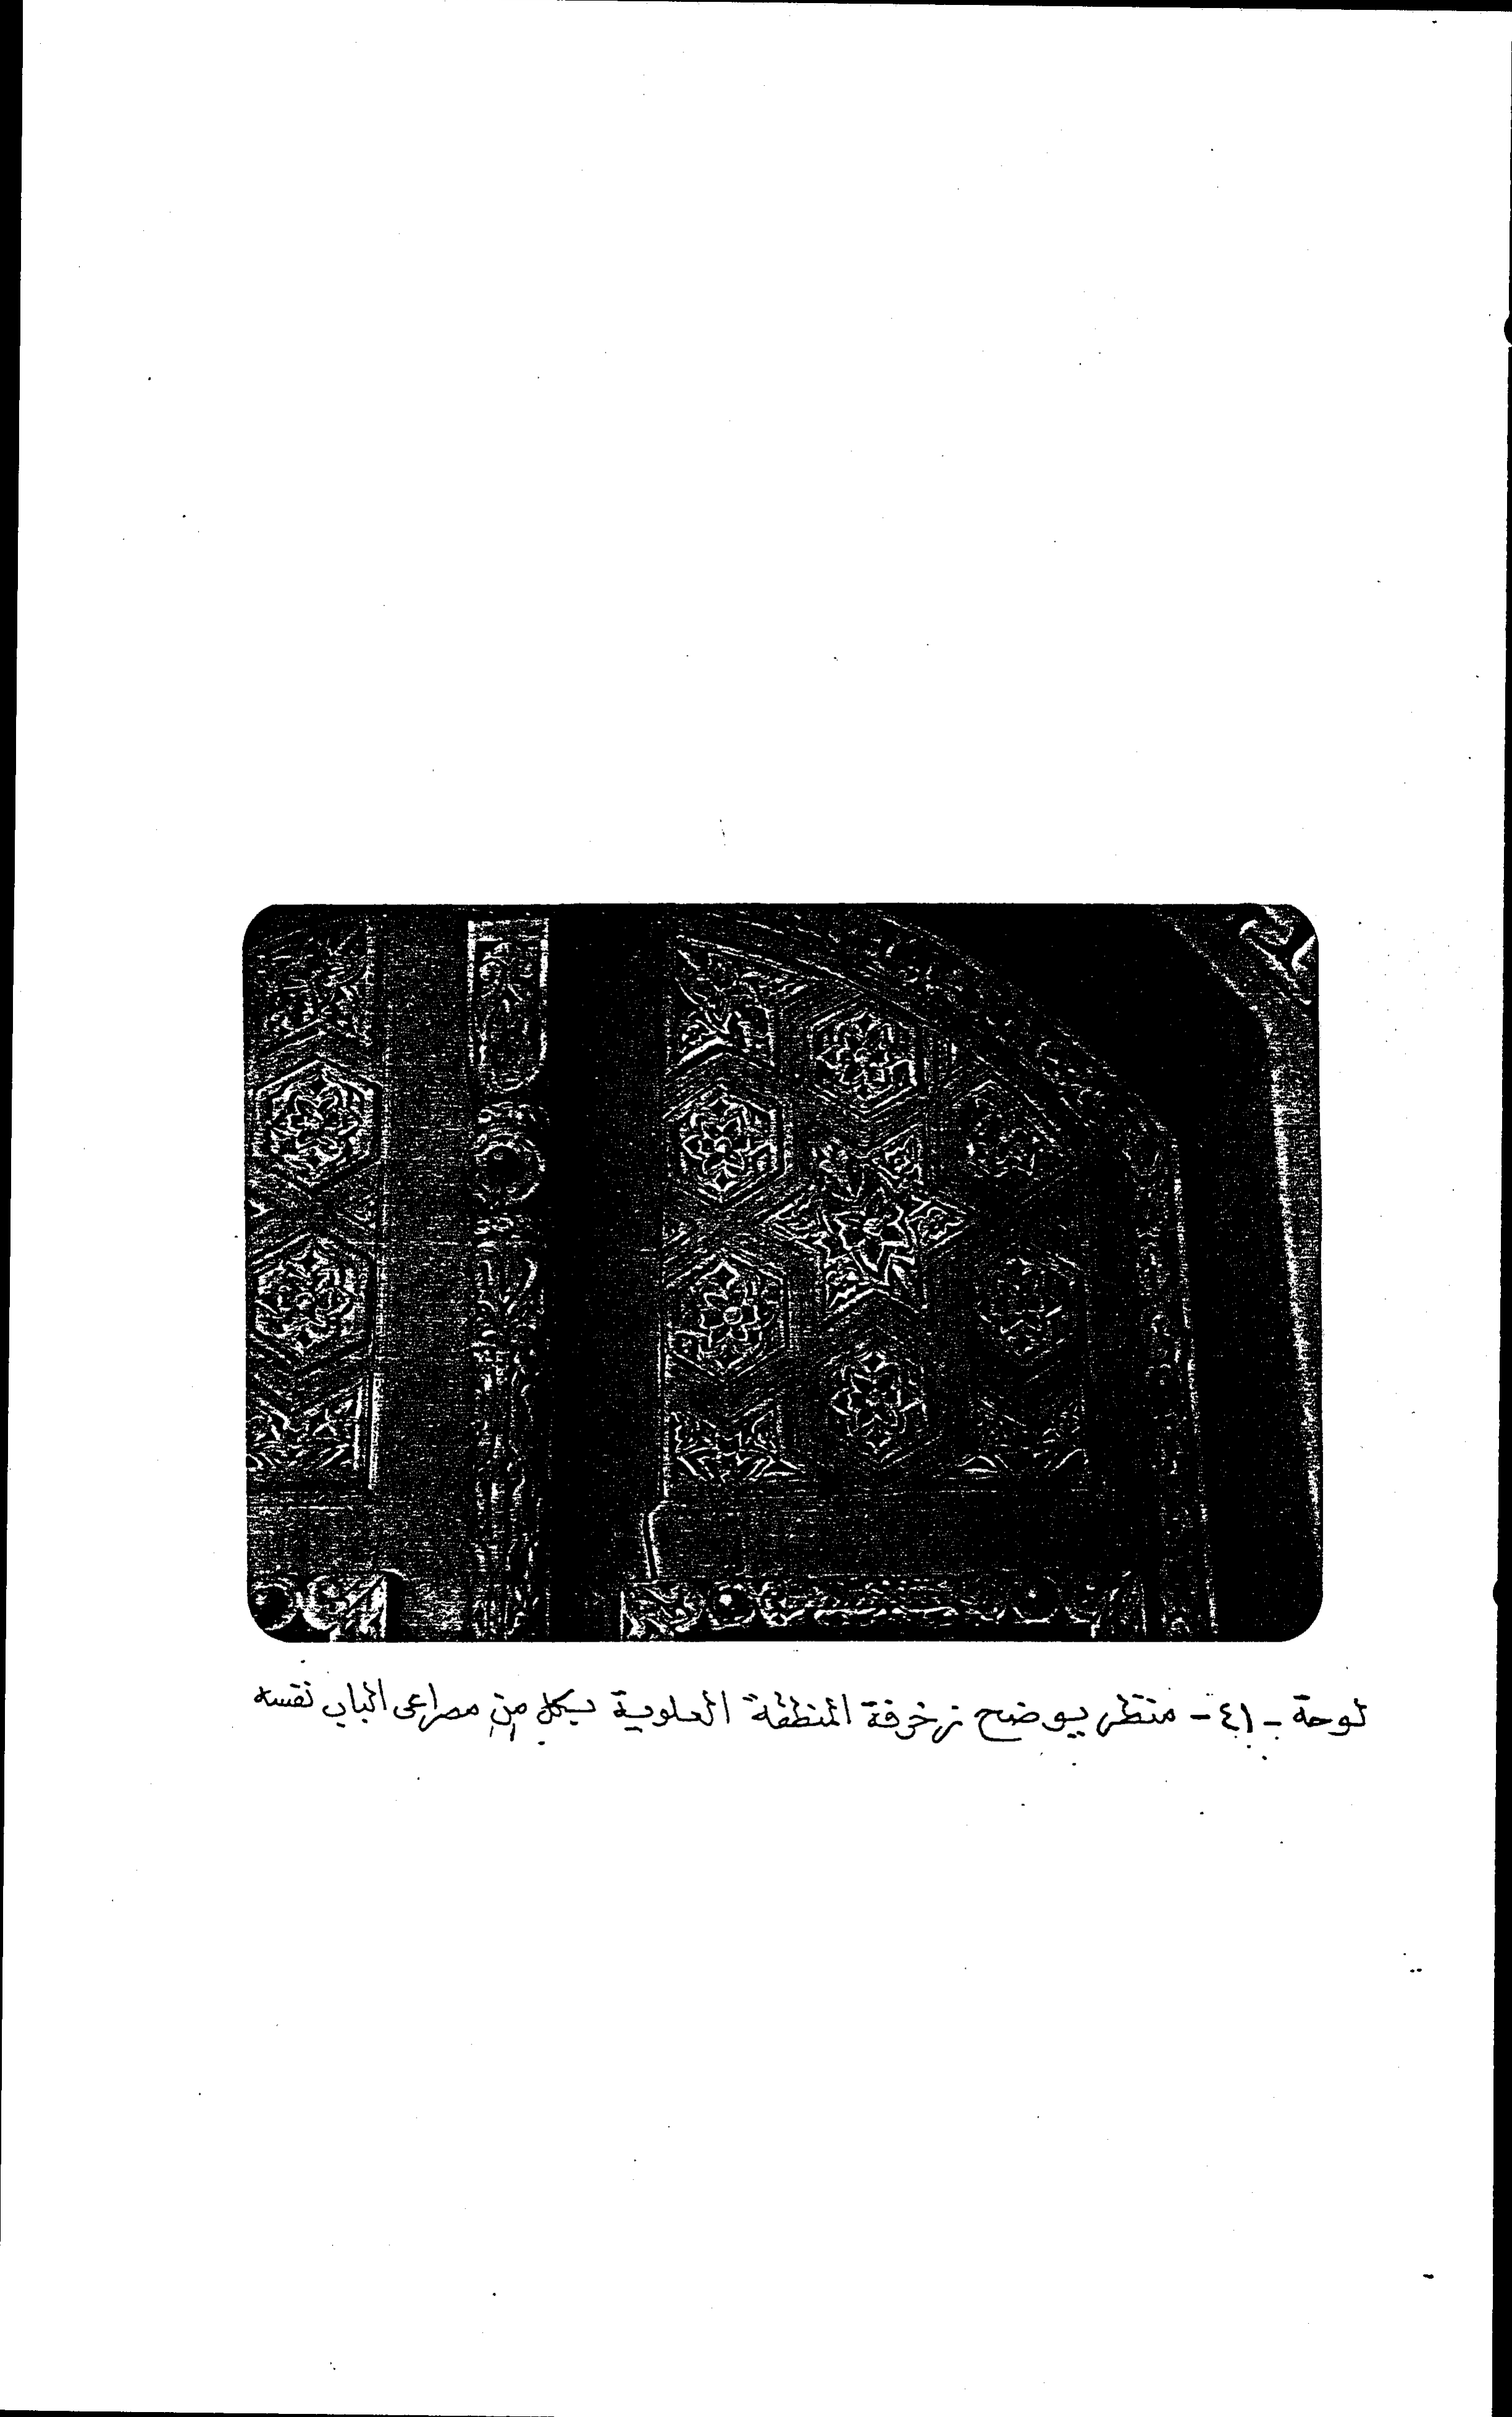 لوحة - ٤١ - منظر يوضح زخرفة المنطقة العلوية بكل من مصراعى الباب نفسه